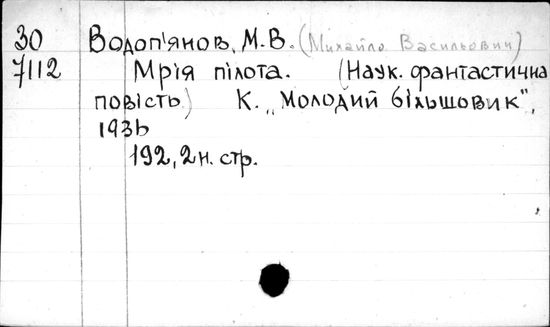 30 Водоп'янов, М.В. (Михайло Васильович)
7112 Мрія пілота. (Наук. фантастична
повість) К. „Молодий більшовик",
1936
192, 2 н. стр.